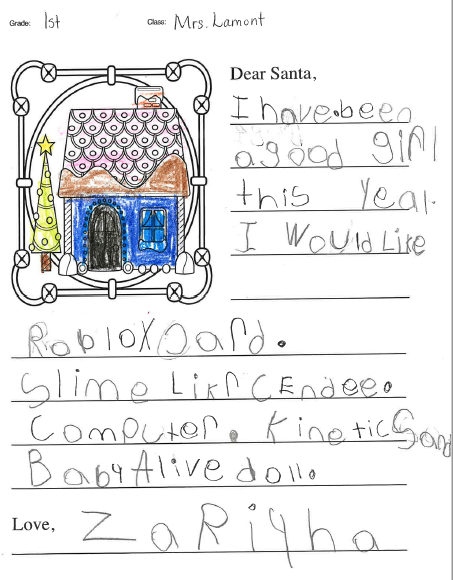 Grade: 1st Class: Mrs. Lamont
Dear Santa,
I have been
a good girl
this year.
I Would Like
Roblox Card.
Slime Likr CEndee.
Computer. Kinetic Sand
Baby Alive doll.
Love, Zariyha